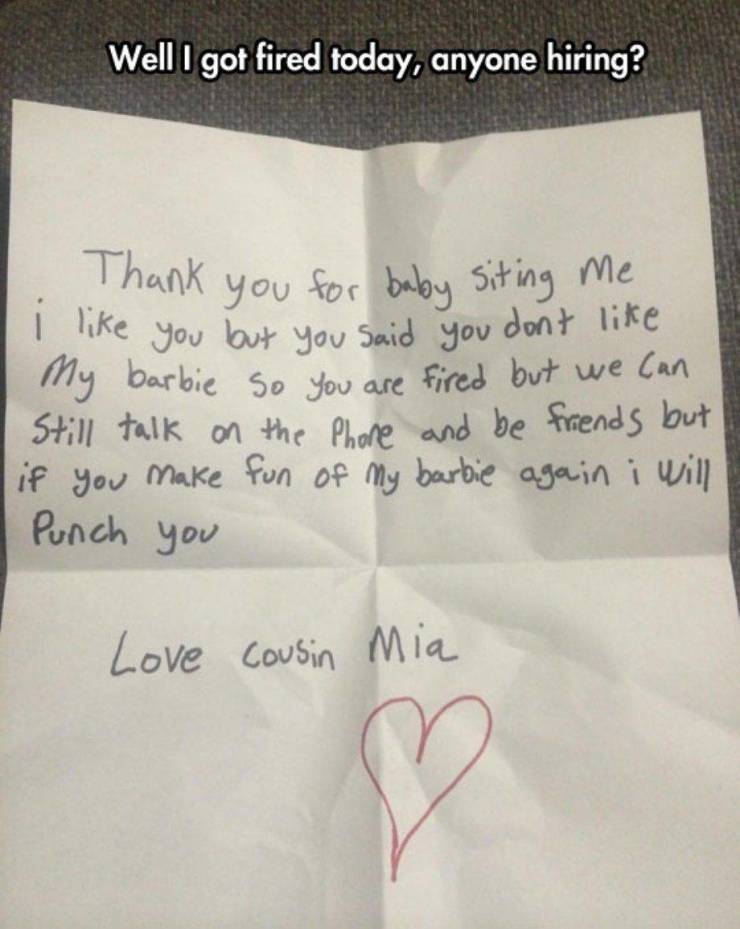 Well I got fired today, anyone hiring?
Thank you for baby siting Me
i like you but you said you dont like
My barbie so you are fired but we can
Still talk on the Phone and be friends but
if you Make fun of My barbie again i will
Punch you
Love cousin Mia